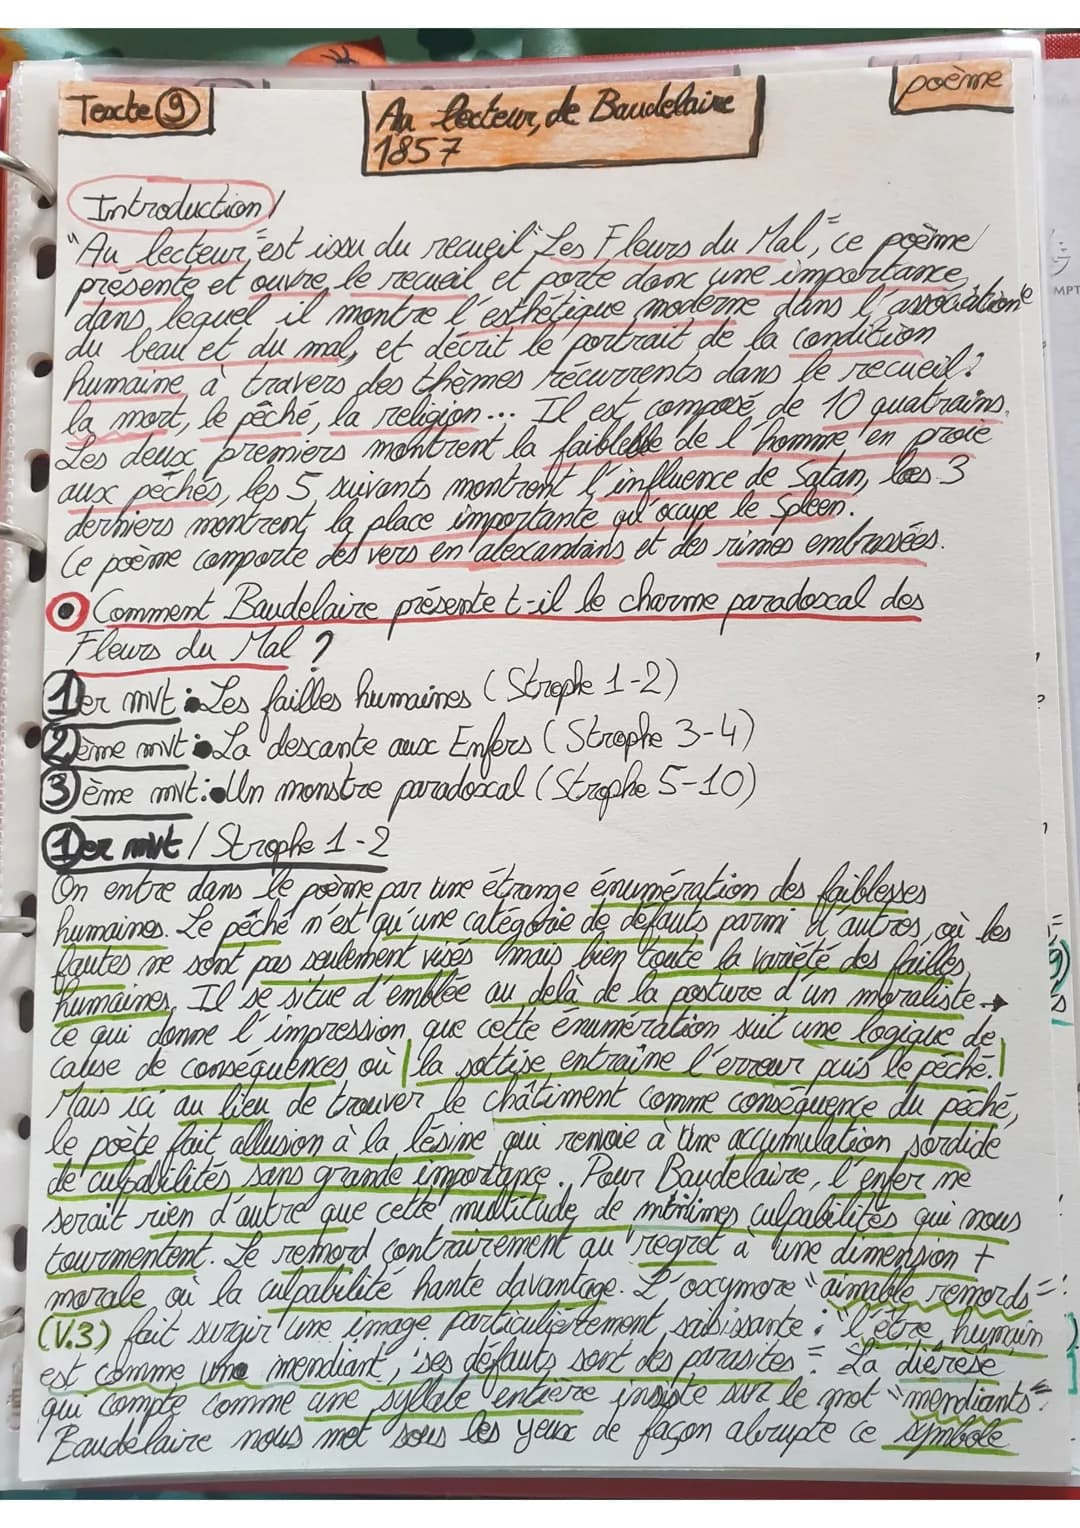 Texte 9
Au lecteur, de Baudelaire
1857
poème
Introduction /
"Au lecteur" est issu du recueil "Les Fleurs du Mal", ce poème
présente et ouvre le recueil et porte donc une importance
dans lequel il montre l'esthétique moderne dans l'association
du beau et du mal, et décrit le portrait de la condition
humaine à travers des thèmes récurrents dans le recueil :
la mort, le péché, la religion... Il est composé de 10 quatrains.
Les deux premiers montrent la faiblesse de l'homme en proie
aux péchés, les 5 suivants montrent l'influence de Satan, les 3
derniers montrent la place importante qu'occupe le Spleen.
Ce poème comporte des vers en alexandrins et des rimes embrassées.
Comment Baudelaire présente t-il le charme paradoxal des
Fleurs du Mal ?
1er mvt : Les failles humaines (Strophe 1-2)
2ème mvt : La descante aux Enfers (Strophe 3-4)
3ème mvt : Un monstre paradoxal (Strophe 5-10)
1er mvt / Strophe 1-2
On entre dans le poème par une étrange énumération des faiblesses
humaines. Le péché n'est qu'une catégorie de défauts parmi d'autres, où les
fautes ne sont pas seulement visés mais bien toute la variété des failles
humaines. Il se situe d'emblée au delà de la posture d'un moraliste →
ce qui donne l'impression que cette énumération suit une logique de
cause de conséquences où | la sottise entraîne l'erreur puis le péché. |
Mais ici au lieu de trouver le châtiment comme conséquence du péché,
le poète fait allusion à la lésine qui renvoie à une accumulation sordide
de culpabilités sans grande importance. Pour Baudelaire, l'enfer ne
serait rien d'autre que cette multitude de minimes culpabilités qui nous
tourmentent. Le remord contrairement au regret à une dimension +
morale où la culpabilité hante davantage. L'oxymore "aimable remords"
(V.3) fait surgir une image particulièrement saisissante : "l'être humain
est comme une mendiant, ses défauts sont des parasites" La diérèse
qui compte comme une syllabe entière insiste sur le mot "mendiants".
Baudelaire nous met sous les yeux de façon abrupte ce symbole
MPT